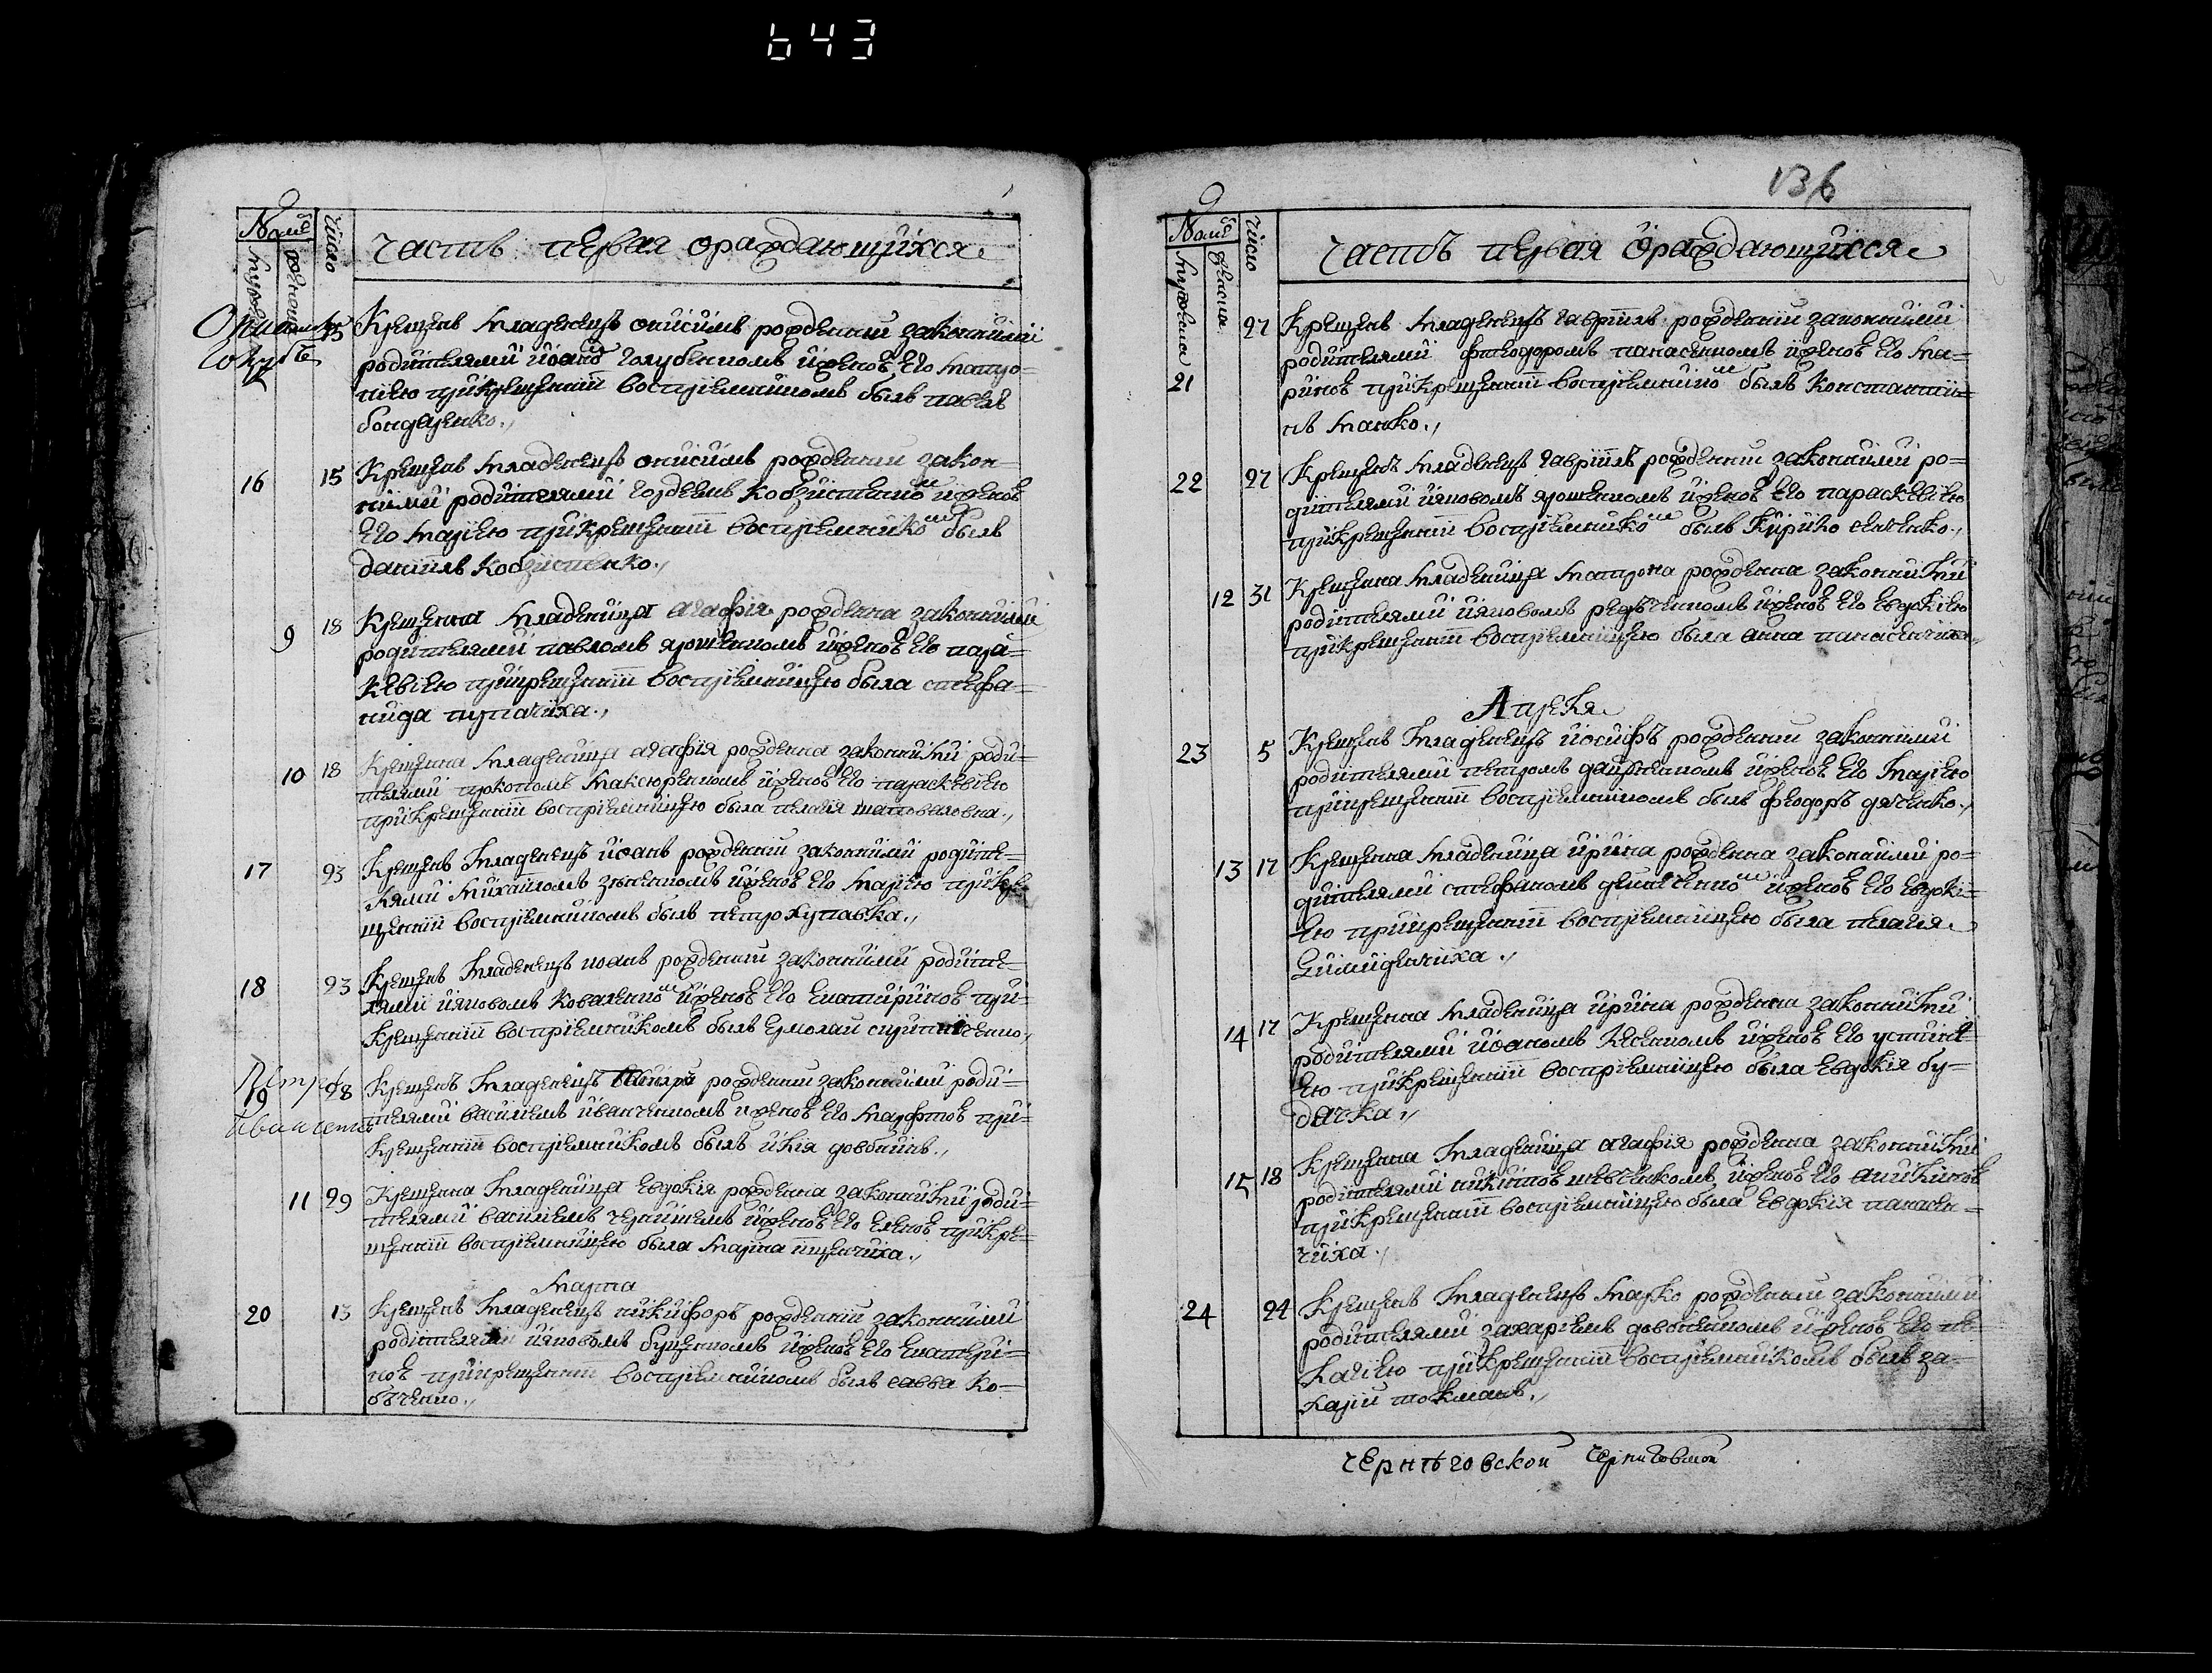 643
№мъ
мужеска
женска
число
часть первая ораждающихся
Онисимъ
Голубъ
15 Крещенъ младенецъ онисимъ рожденнїй законнимїй
родителями иоаномъ голубенкомъ ижено́ю его матро-
ною прикрещенїй воспрїемникомъ былъ павелъ
бондаренко.
16 15 Крещенъ младенецъ онисимъ рожденнїй закон-
ними родителями гордеемъ кобзистенкомъ иженою
его марїею прикрещенїи воспрїемникомъ былъ
данїилъ кобзистенко.
9 18 Крещенна младеница агафїя рожденна законними
родителями павломъ ярошенкомъ иженою его пара-
кевїею прикрещенїи воспрїемницею была стефа-
нида пугачиха.
10 18 Крещенна младеница агафїя рожденна законними роди-
телями прокопомъ максюренкомъ иженою его параскевїею
прикрещенїи воспрїемницею была пелагїя шаповаловна.
17 23 Крещенъ младенецъ иоанъ рожденнїй законними родите-
лями михайломъ зѣненкомъ иженою его марїею прикре-
щенїи воспрїемникомъ былъ петро хупавка.
18 23 Крещенъ младенецъ иоанъ рожденнїй законними родите-
лямиияковомъ коваленкомъ иженою его екатириною при-
крещенїи воспрїемникомъ былъ ермолай
Петръ
19 28 Крещенъ младенецъ рожденнїй законними роди-
Иванченко
телями василемъ иванченкомъ иженою его марфтою при-
крещенїи воспрїемникомъ былъ илїя довбишъ.
11 29 Крещенна младеница евдокїя рожденна законними роди-
телями василемъ иженою его еленою прикре-
щенїи воспрїемницею была марина
марта
20 13 Крещенъ младенецъ никифоръ рожденнїй законними
родителямиияковомъ буценкомъ иженою его екатери-
ною прикрещенїи воспрїемникомъ былъ савва ко-
бченко.
136
№мъ
мужеска
женска
число
часть первая ораждающихся
27 Крещенъ младенецъ гаврїилъ рожденнїй законними
родителями фтеодоромъ панасенкомъ иженою его ма-
21 риною прикрещенїи воспрїемникомъ былъ константи-
нъ манко.
22 27 Крещенъ младенецъ гаврїилъ рожденнїй законними ро-
дителями ияковомъ ярошенкомъ иженою его параскевїею
прикрещенїи воспрїемникомъ былъ кирило
12 31 Крещенна младеница матрона рожденна законними
родителями ияковомъ редченкомъ иженою его евдокїею
прикрещенїи воспрїемницею была анна панасенчиха.
Апреля
23 5 Крещенъ младенецъ иосифъ рожденнїй законними
родителями петромъ иженою его марїею
прикрещенїи воспрїемникомъ былъ феодоръ дяченко.
13 17 Крещенна младеница ирина рожденна законними ро-
дителями стефаномъ иженою его евдокї-
ею прикрещенїи воспрїемницею была пелагїя

14 17 Крещенна младеница ирина рожденна законними
родителями иоаномъ лесенкомъ иженою его устинї-
ею прикрещенїи воспрїемницею была евдокїя бу-
дачка.
15 18 Крещенна младеница агафїя рожденна законними
родителями никитою шевченкомъ иженою его акилиною
прикрещенїи воспрїемницею была евдокїя панасен-
чиха.
24 24 Крещенъ младенецъ марко рожденнїй законними
родителями захарїемъ довбенкомъ иженою его пе-
лагїею прикрещенїи воспрїемникомъ былъ за-
харїй токманъ.
чернѣговской Черниговской